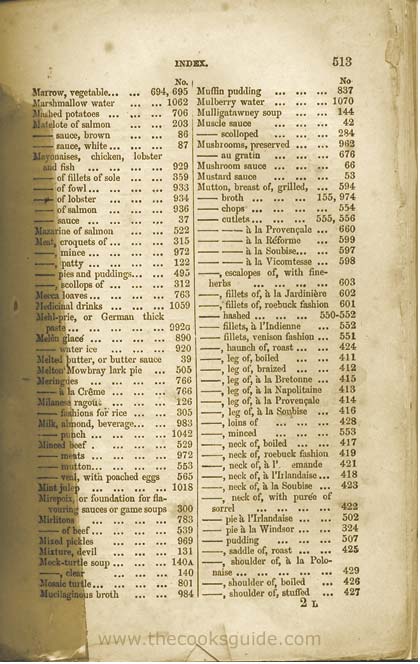 INDEX. 513
No.
Marrow, vegetable... ... 694, 695
Marshmallow water ... ... 1062
Mashed potatoes ... ... ... 706
Matelote of salmon ... ... 203
—— sauce, brown ... ... 86
—— sauce, white ... ... ... 87
Mayonaises, chicken, lobster
and fish ... ... ... ... 929
—— of fillets of sole ... ... 359
—— of fowl ... ... ... ... 933
—— of lobster ... ... ... 934
—— of salmon ... ... ... 936
—— sauce ... ... ... ... 37
Mazarine of salmon ... ... 522
Meat, croquets of ... ... ... 315
——, mince ... ... ... ... 972
——, patty ... ... ... ... 122
—— pies and puddings... ... 495
——, scollops of ... ... ... 312
Mecca loaves ... ... ... ... 763
Medicinal drinks ... ... ... 1059
Mehl-prie, or German thick
paste ... ... ... ... ... 992a
Melon glacé ... ... ... ... 890
—— water ice ... ... ... 920
Melted butter, or butter sauce 39
Melton Mowbray lark pie ... 505
Meringues ... ... ... ... 766
—— à la Crême ... ... ... 766
Milanese ragout ... ... ... 126
—— fashions for rice ... ... 305
Milk, almond, beverage... ... 983
—— punch ... ... ... ... 1042
Minced beef ... ... ... ... 529
—— meats ... ... ... ... 972
—— mutton... ... ... ... 553
—— veal, with poached eggs 565
Mint julep ... ... ... ... 1018
Mirepoix, or foundation for fla-
vouring sauces or game soups 300
Mirlitons ... ... ... ... 783
—— of beef ... ... ... ... 539
Mixed pickles ... ... ... 969
Mixture, devil ... ... ... 131
Mock-turtle soup ... ... ... 140A
——, clear ... ... ... 140
Mosaic turtle ... ... ... ... 801
Mucilaginous broth ... ... 984
No
Muffin pudding ... ... ... 837
Mulberry water ... ... ... 1070
Mulligatawney soup ... ... 144
Muscle sauce ... ... ... 42
—— scolloped ... ... ... 284
Mushrooms, preserved ... ... 962
—— au gratin ... ... ... 676
Mushroom sauce ... ... ... 66
Mustard sauce ... ... ... 53
Mutton, breast of, grilled, ... 594
—— broth ... ... ... 155, 974
—— chops ... ... ... ... 554
—— cutlets ... ... ... 555, 556
—— —— à la Provençale ... 660
—— —— à la Réforme ... 599
—— —— à la Soubise... ... 597
—— —— à la Vicomtesse ... 598
——, escalopes of, with fine-
herbs ... ... ... ... ... 603
——, fillets of, à la Jardinière 602
——, fillets of, roebuck fashion 601
—— hashed ... ... ... 550-552
—— fillets, à l'Indienne ... 552
—— fillets, venison fashion ... 551
——, haunch of, roast ... ... 424
——, leg of, boiled ... ... 411
——, leg of, braized ... ... 412
——, leg of, à la Bretonne ... 415
——, leg of, à la Napolitaine 413
——, leg of, à la Provençale 414
——, leg of, à la Soubise ... 416
——, loins of ... ... ... 428
——, minced ... ... ... 553
——, neck of, boiled ... ... 417
——, neck of, roebuck fashion 419
——, neck of, à l' emande 421
——, neck of, à l'Irlandaise ... 418
——, neck of, à la Soubise ... 423
——, neck of, with purée of
sorrel ... ... ... ... 422
—— pie à l'Irlandaise ... ... 502
—— pie à la Windsor ... ... 324
—— pudding ... ... ... 507
——, saddle of, roast ... ... 425
——, shoulder of, à la Polo-
naise ... ... ... ... ... 429
——, shoulder of, boiled ... 426
——, shoulder of, stuffed ... 427
2 L
www.thecooksguide.com